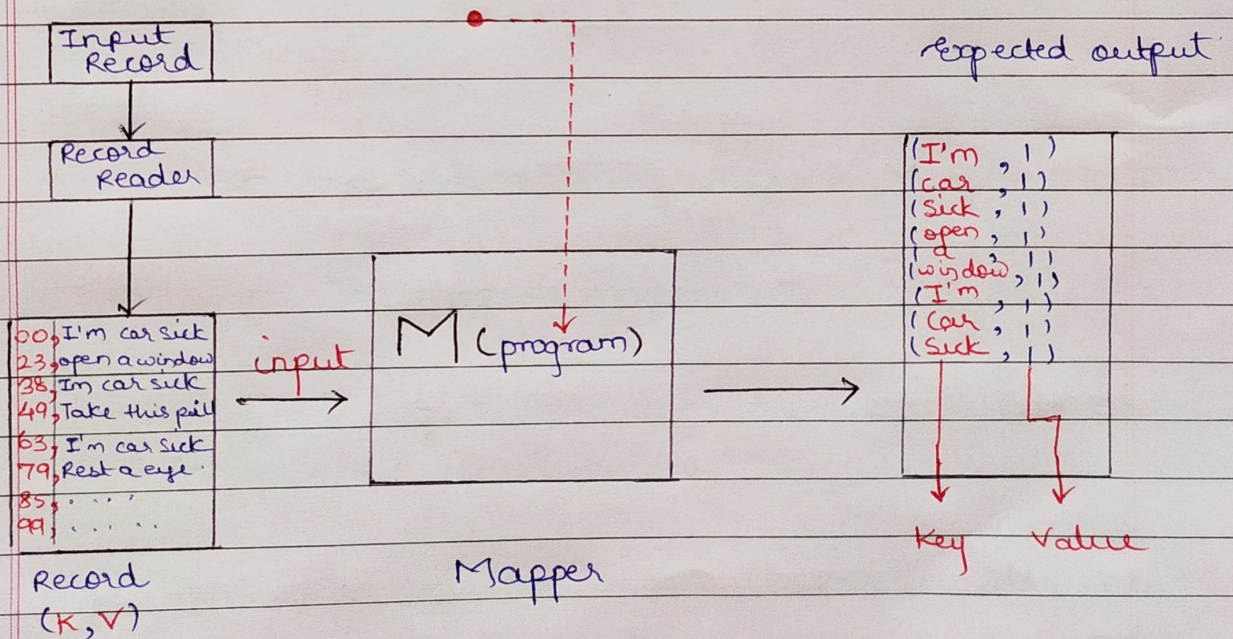 Input
Record
Record
Reader
00, I'm car sick
23, open a window
38, Im car sick
49, Take this pill
63, I'm car sick
79, Rest a eye.
85, . . . .
99, . . . . .
Record
(K, V)
input
M (program)
Mapper
Expected output
(I'm, 1)
(car, 1)
(Sick, 1)
(open, 1)
(a, 1)
(window, 1)
(I'm, 1)
(Car, 1)
(Sick, 1)
Key Value